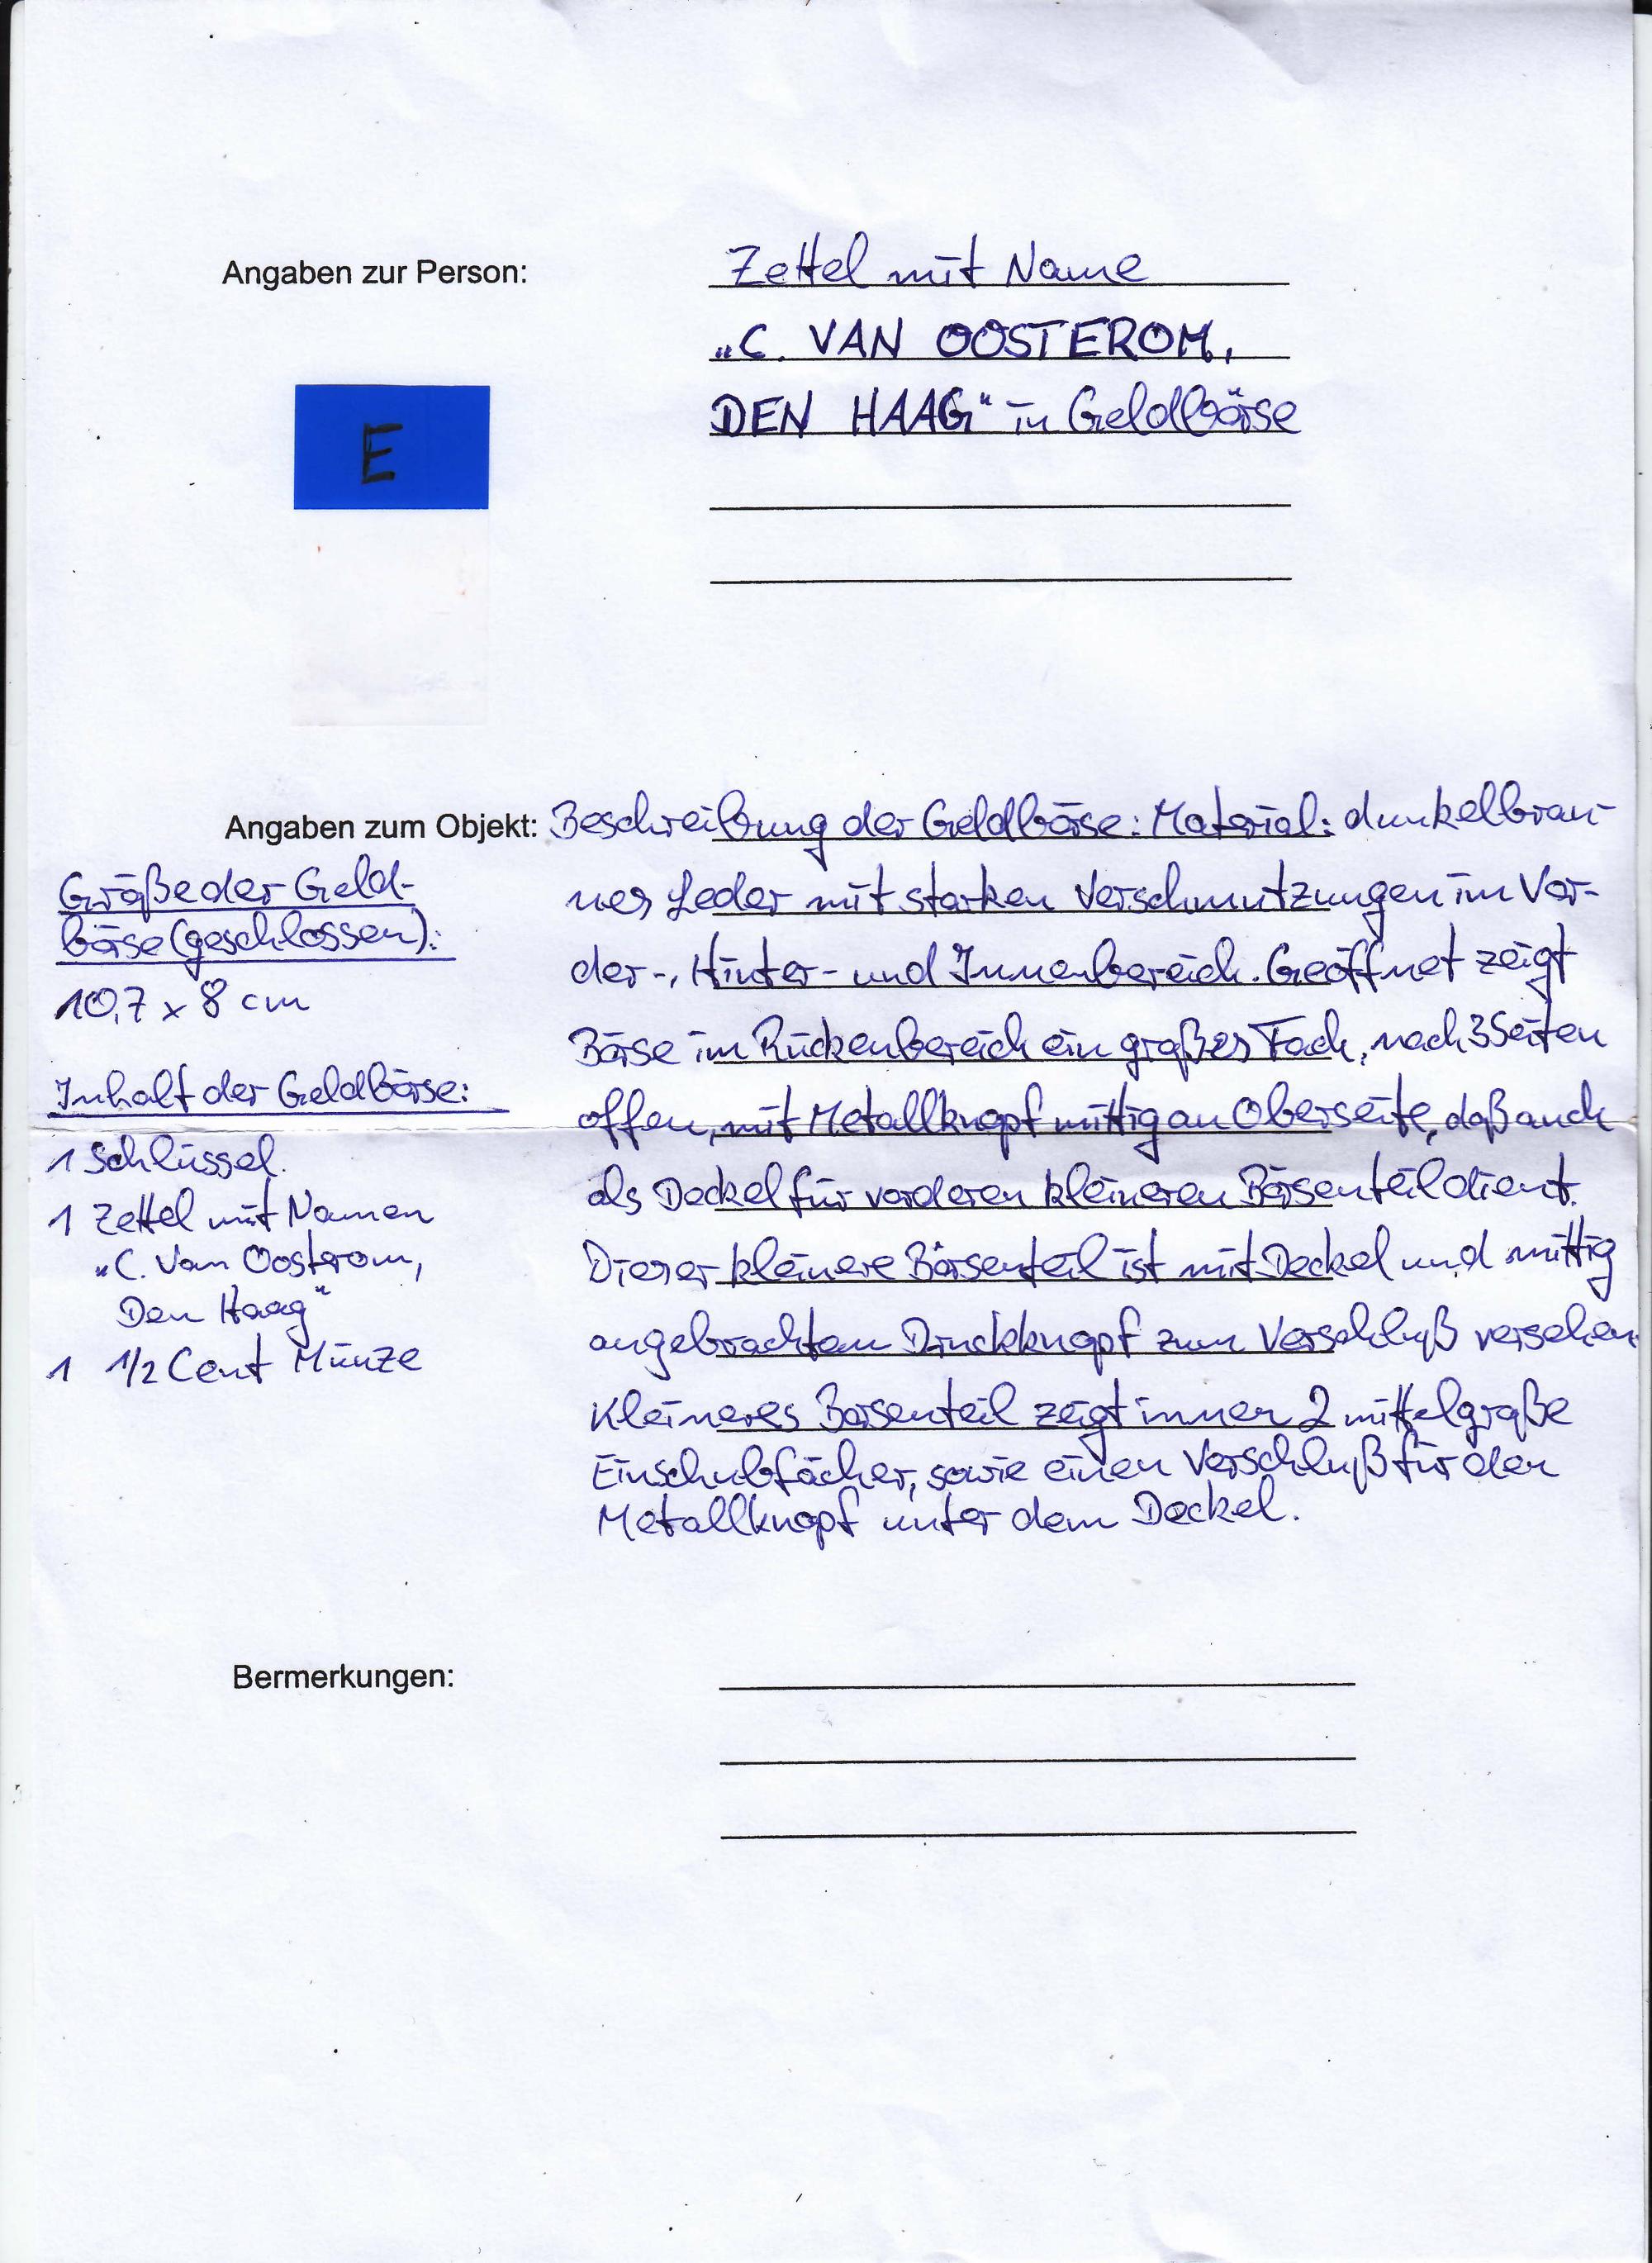 Angaben zur Person:
Zettel mit Name
„C. VAN OOSTEROM,
DEN HAAG" in Geldbörse
E
Angaben zum Objekt: Beschreibung der Geldbörse: Material: dunkelbrau-
nes Leder mit starken Verschmutzungen im Vor-
der-, Hinter- und Innenbereich. Geöffnet zeigt
Börse im Rückenbereich ein großes Fach, nach 3 Seiten
offen, mit Metallknopf mittig an Oberseite, daß auch
als Deckel für vorderen kleineren Börsenteil dient.
Dieser kleinere Börsenteil ist mit Deckel und mittig
angebrachtem Druckknopf zum Verschluß versehen
Kleineres Börsenteil zeigt innen 2 mittelgroße
Einschubfächer, sowie einen Verschluß für den
Metallknopf unter dem Deckel.
Größe der Geld-
börse (geschlossen):
10,7 x 8 cm
Inhalt der Geldbörse:
1 Schlüssel.
1 Zettel mit Namen
„C. Van Oosterom,
Den Haag"
1 1/2 Cent Münze
Bermerkungen: